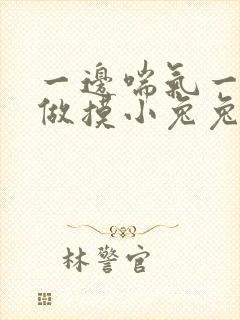 一邊喘氣一
做摸小兔兔
林警官